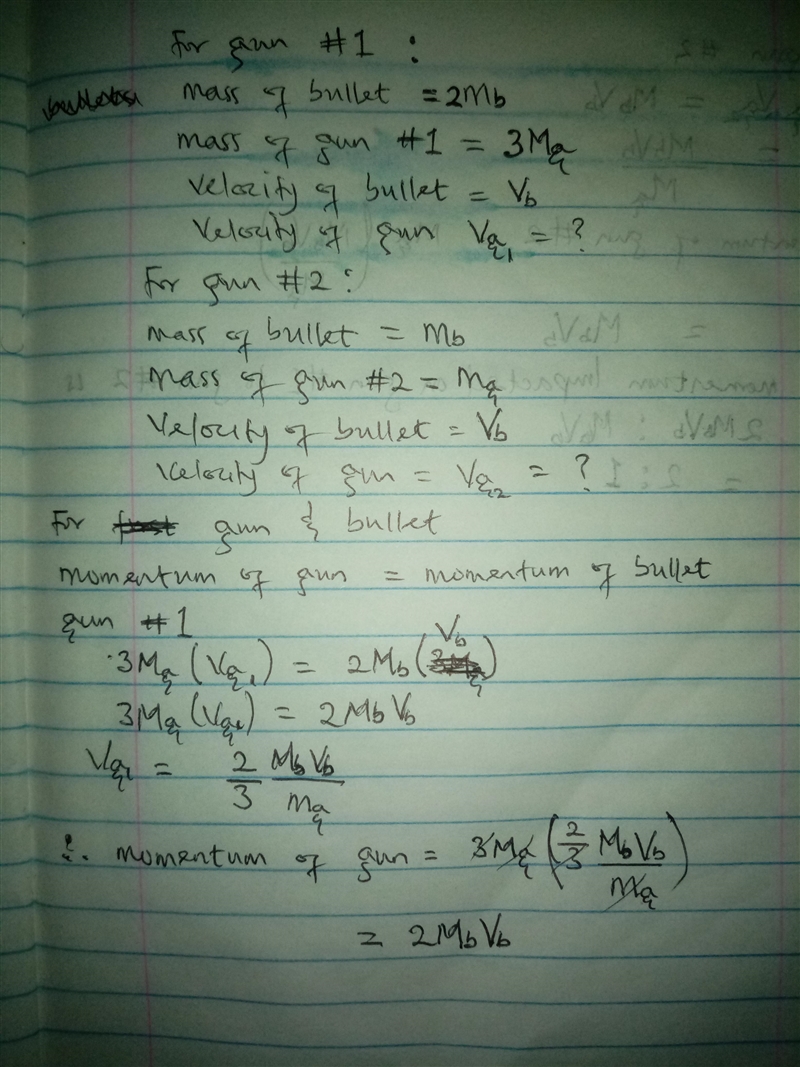 For gun #1 :
mass of bullet = 2Mb
mass of gun #1 = 3Mg
Velocity of bullet = Vb
Velocity of gun Vg1 = ?
For gun #2 :
mass of bullet = Mb
Mass of gun #2 = Mg
Velocity of bullet = Vb
Velocity of gun = Vg2 = ?
For gun & bullet
momentum of gun = momentum of bullet
gun #1
3Mg (Vg1) = 2Mb (Vb)
3Mg (Vg1) = 2MbVb
Vg1 = 2/3 MbVb/Mg
∴ momentum of gun = 3Mg (2/3 MbVb/Mg)
= 2MbVb